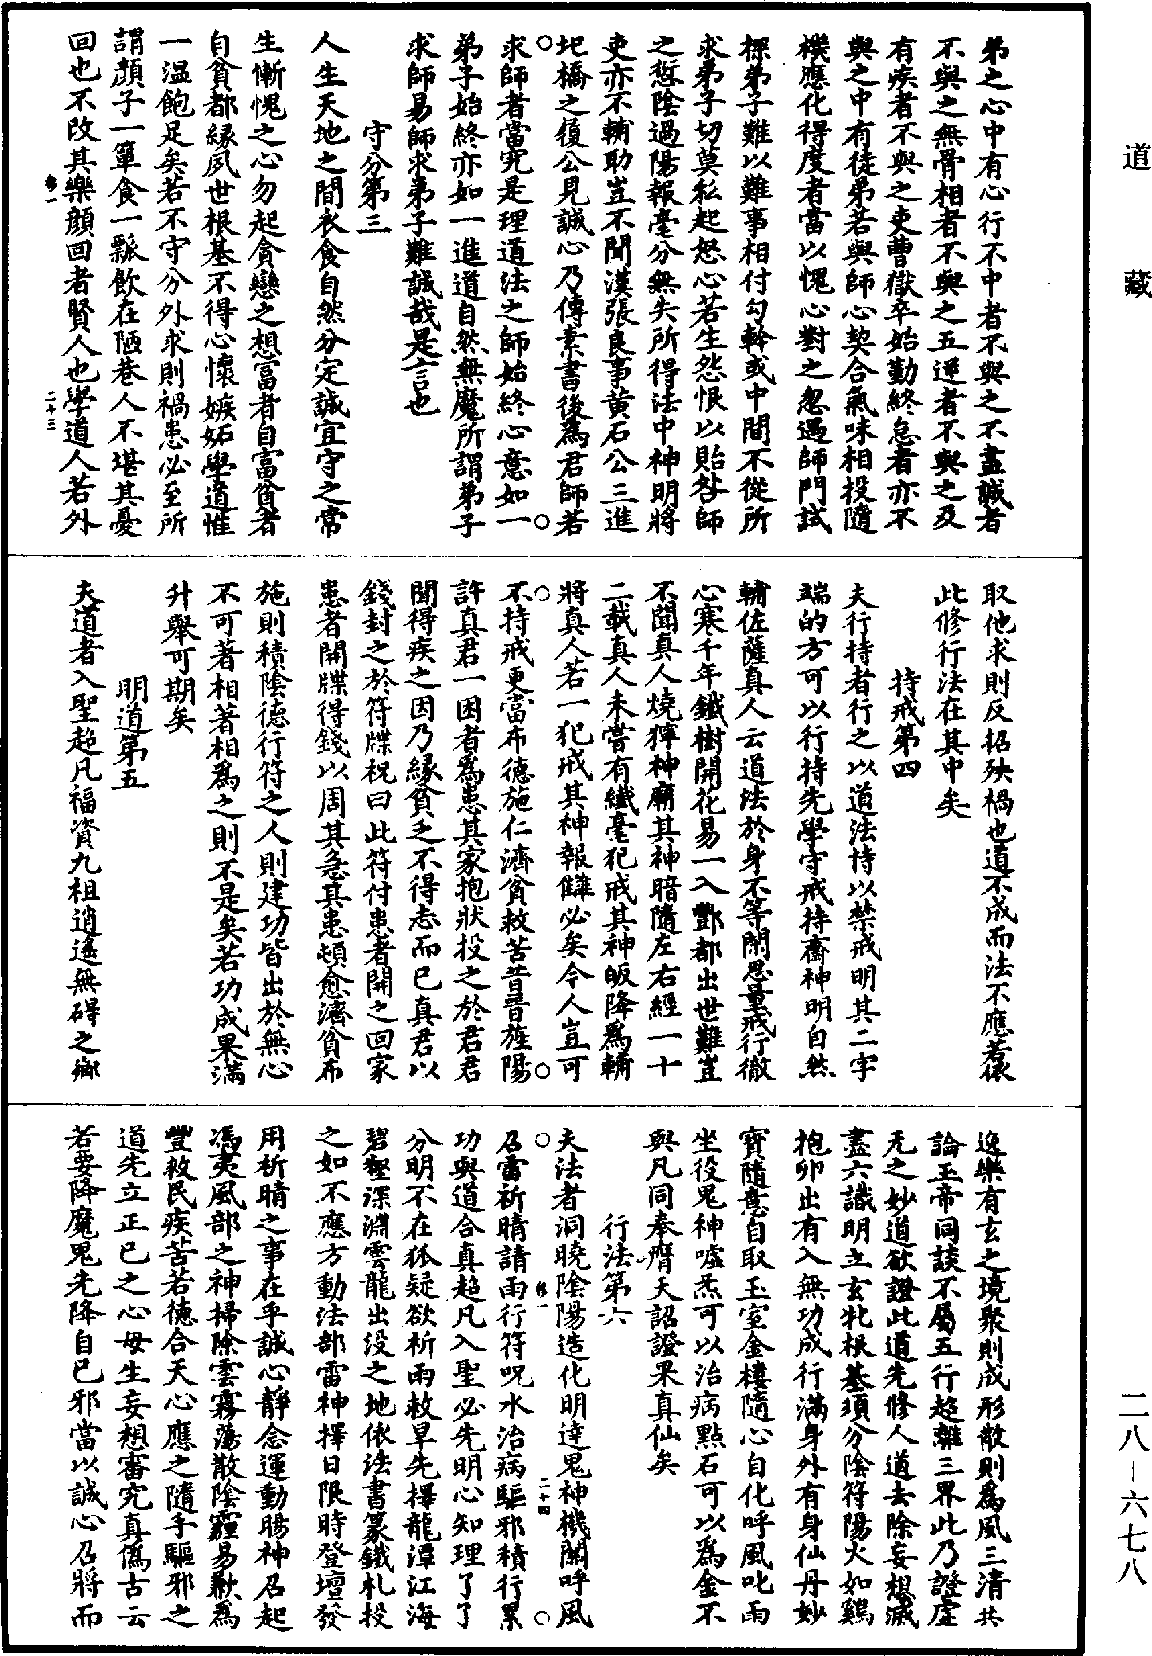 道藏
二八－六七八
弟之心中有心行不中者不與之不盡誠者
不與之無骨相者不與之五逆者不與之及
有疾者不與之吏曹獄卒始勤終怠者亦不
與之中有徒弟若與師心契合氣味相投隨
機應化得度者當以愧心對之忽遇師門試
探弟子難以難事相付勾幹或中間不從所
求弟子切莫私起怒心若生怨恨以貽咎師
之愆陰過陽報毫分無失所得法中神明將
吏亦不輔助豈不聞漢張良事黃石公三進
圯橋之履公見誠心乃傳素書後為君師若
求師者當究是理道法之師始終心意如一
弟子始終亦如一進道自然無魔所謂弟子
求師易師求弟子難誠哉是言也
守分第三
人生天地之間衣食自然分定誠宜守之常
生慚愧之心勿起貪戀之想富者自富貧者
自貧都緣夙世根基不得心懷嫉妬學道惟
一溫飽足矣若不守分外求則禍患必至所
謂顏子一簞食一瓢飲在陋巷人不堪其憂
回也不改其樂顏回者賢人也學道人若外
卷一
二十三
取他求則反招殃禍也道不成而法不應若依
此修行法在其中矣
持戒第四
夫行持者行之以道法持以禁戒明其二字
端的方可以行持先學守戒持齋神明自然
輔佐薩真人云道法於身不等閑思量戒行徹
心寒千年鐵樹開花易一入酆都出世難豈
不聞真人燒獰神廟其神暗隨左右經一十
二載真人未嘗有纖毫犯戒其神皈降為輔
將真人若一犯戒其神報讎必矣今人豈可
不持戒更當布德施仁濟貧救苦昔晉旌陽
許真君一困者為患其家抱狀投之於君君
聞得疾之因乃緣貧乏不得志而已真君以
錢封之於符牒祝曰此符付患者開之回家
患者開牒得錢以周其急其患頓愈濟貧布
施則積陰德行符之人則建功皆出於無心
不可著相著相為之則不是矣若功成果滿
升舉可期矣
明道第五
夫道者入聖超凡福資九祖逍遙無碍之鄉
逸樂有玄之境聚則成形散則為風三清共
論玉帝同談不屬五行超離三界此乃證虛
无之妙道欲證此道先修人道去除妄想滅
盡六識明立玄牝根基須分陰符陽火如鷄
抱卵出有入無功成行滿身外有身仙丹妙
寶隨意自取玉室金樓隨心自化呼風叱雨
坐役鬼神噓炁可以治病點石可以為金不
與凡同奉膺天詔證果真仙矣
行法第六
夫法者洞曉陰陽造化明達鬼神機關呼風
召雷祈晴請雨行符呪水治病驅邪積行累
功與道合真超凡入聖必先明心知理了了
分明不在狐疑欲祈雨救旱先擇龍潭江海
碧壑深淵雲龍出没之地依法書篆鐵札投
之如不應方動法部雷神擇日限時登壇發
用祈晴之事在乎誠心靜念運動暘神召起
馮夷風部之神掃除雲霧蕩散陰霾易歉為
豐救民疾苦若德合天心應之隨手驅邪之
道先立正己之心毋生妄想審究真偽古云
若要降魔鬼先降自己邪當以誠心召將而
卷一
二十四